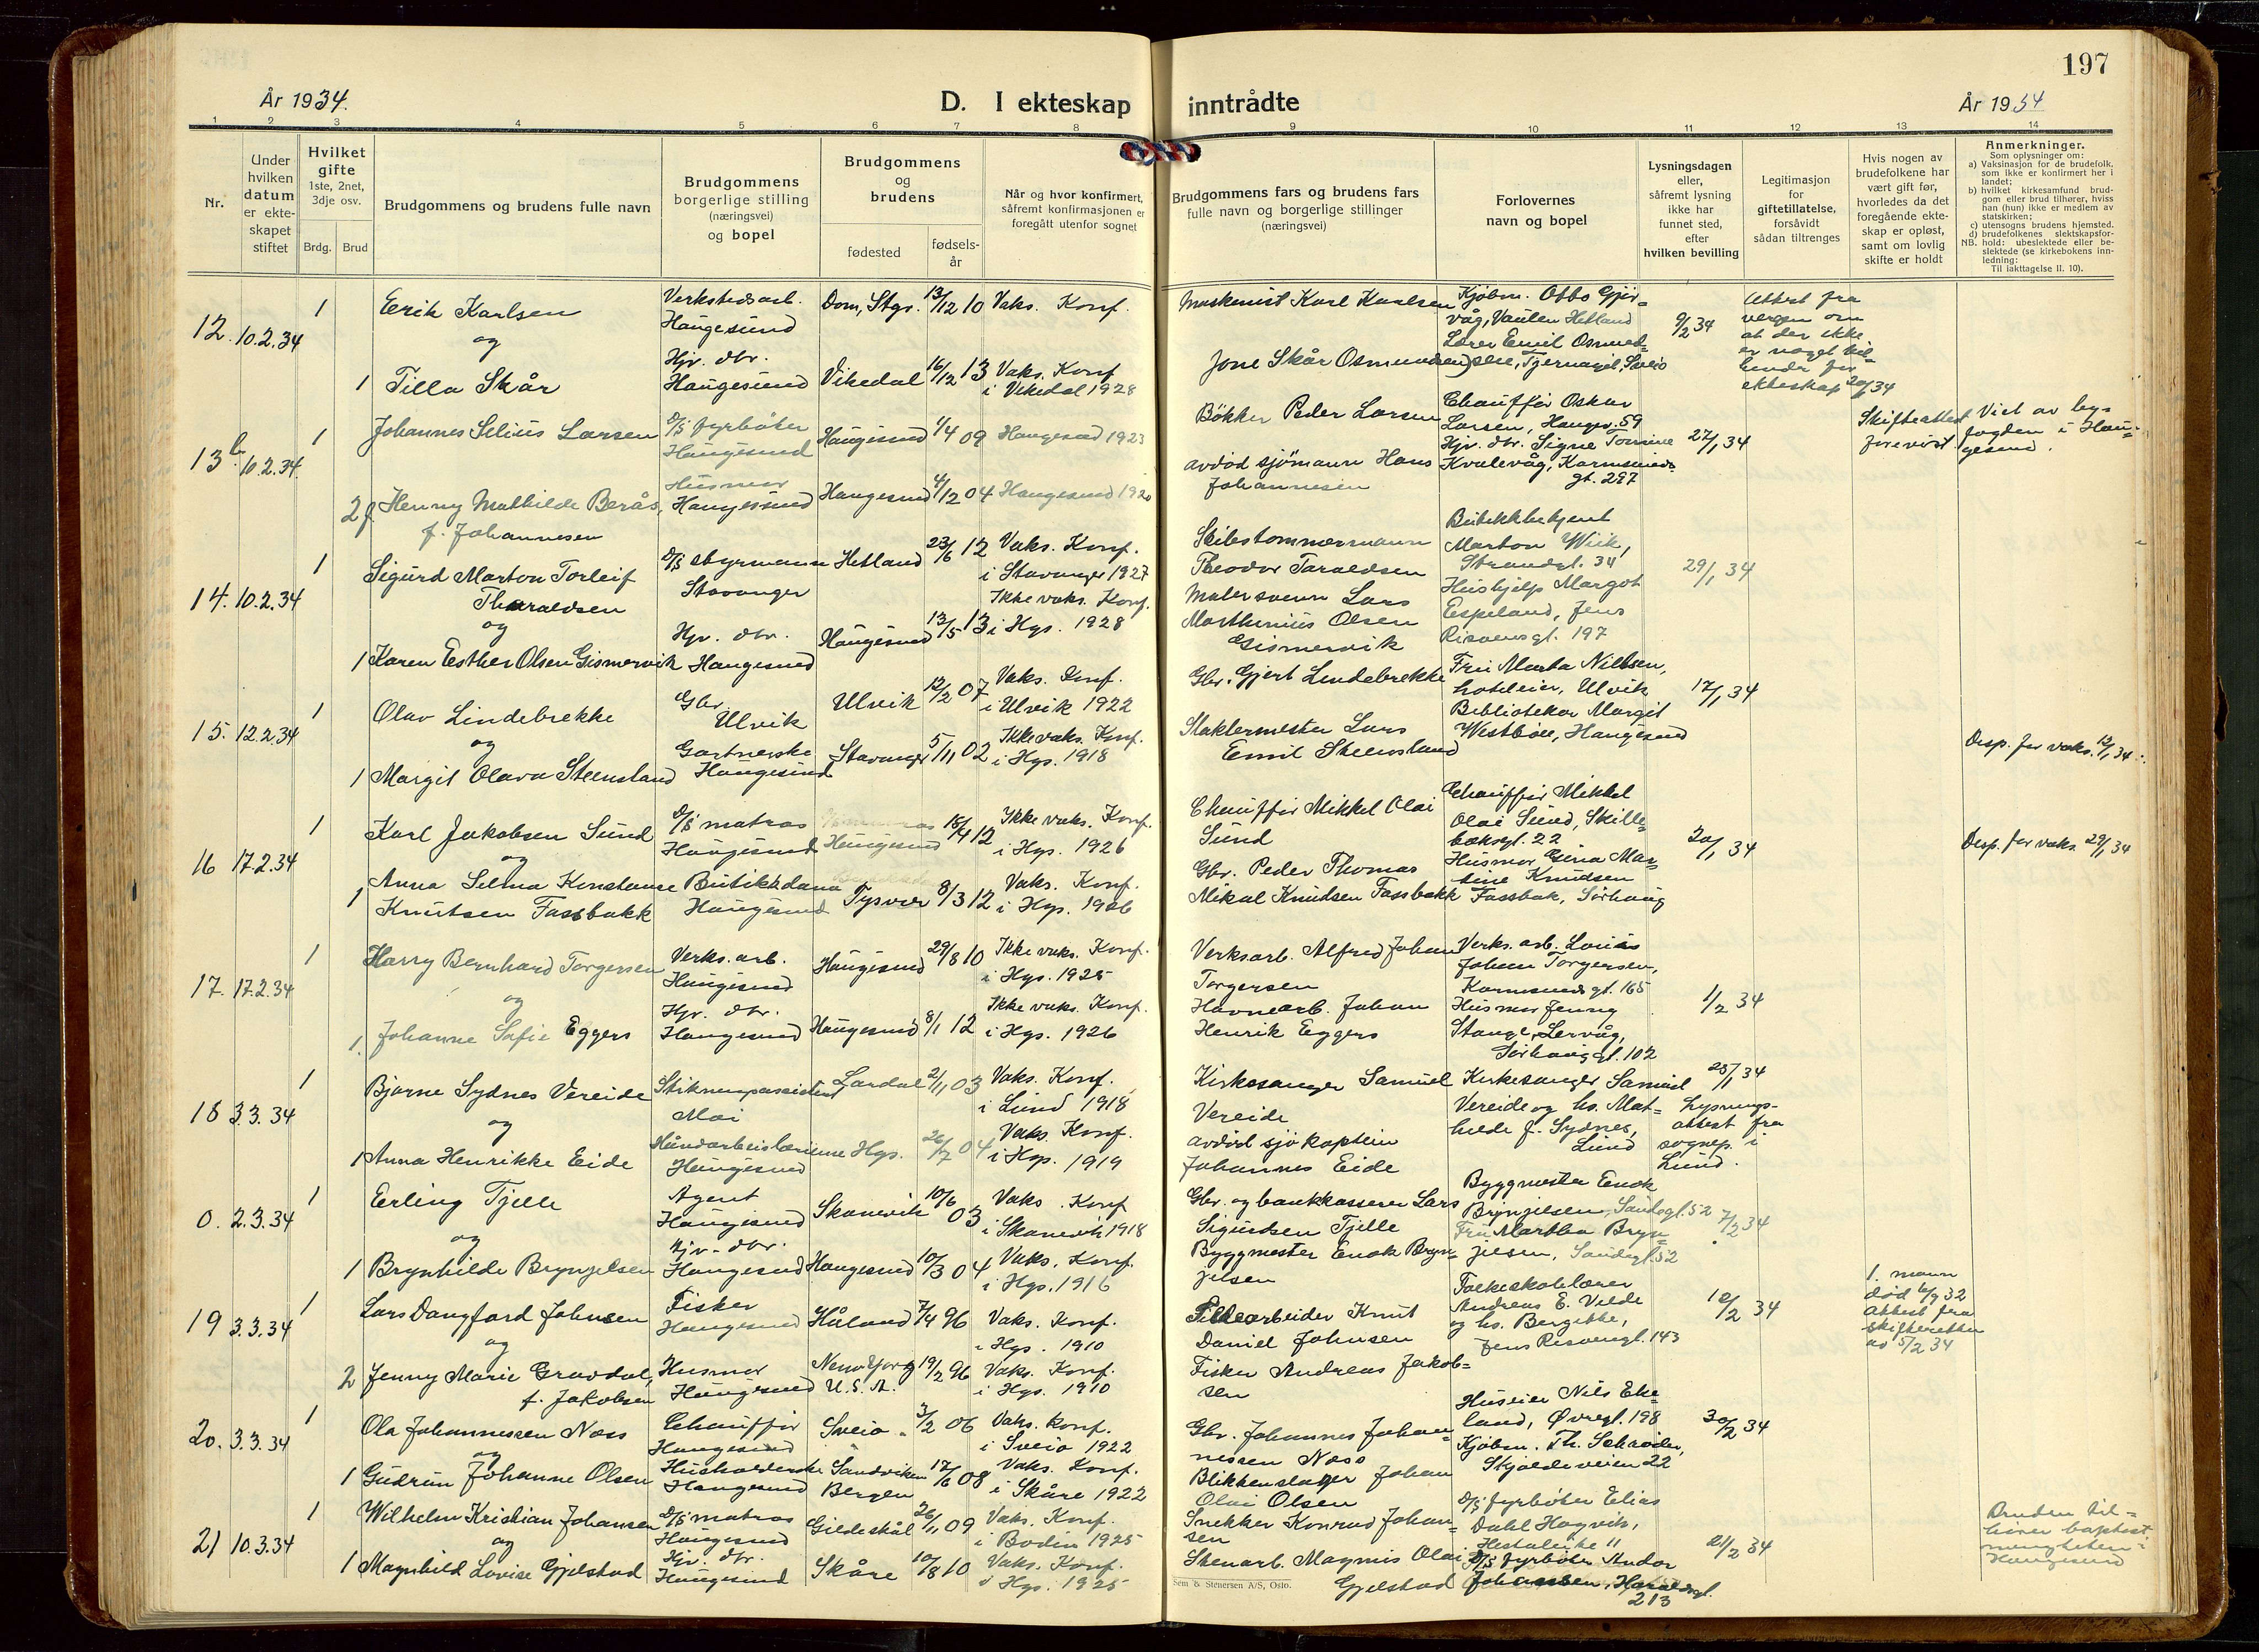 197
År 1934.
D. I ekteskap inntrådte
År 1934
1 2 3 4 5 6 7 8 9 10 11 12 13 14
Nr.
Under hvilken datum er ekteskapet stiftet
Hvilket gifte
1ste, 2net, 3dje osv.
Brdg. Brud
Brudgommens og brudens fulle navn
Brudgommens borgerlige stilling (næringsvei) og bopel
Brudgommens og brudens
fødested
fødsels-år
Når og hvor konfirmert,
såfremt konfirmasjonen er
foregått utenfor sognet
Brudgommens fars og brudens fars
fulle navn og borgerlige stillinger
(næringsvei)
Forlovernes
navn og bopel
Lysningsdagen
eller,
såfremt lysning
ikke har
funnet sted,
efter
hvilken bevilling
Legitimasjon
for
giftetillatelse,
forsåvidt
sådan tiltrenges
Hvis nogen av
brudefolkene har
vært gift før,
hvorledes da det
foregående ekte-
skap er opløst,
samt om lovlig
skifte er holdt
Anmerkninger.
Som oplysninger om:
a) Vaksinasjon for de brudefolk,
som ikke er konfirmert her i
landet;
b) hvilket kirkesamfund brud-
gom eller brud tilhører, hviss
han (hun) ikke er medlem av
statskirken;
c) utensogns brudens hjemsted.
d) brudefolkenes slektskapsfor-
NB. hold: ubeslektede eller be-
slektede (se kirkebokens inn-
ledning:
Til iakttagelse II. 10).
12. 10.2.34 1 Erik Karlsen
og
1 Tilla Skår
Verkstedsarb.
Haugesund
Hjv. dtr.
Haugesund
Dom, Stgr. 13/12 10 Vaks. Konf.
Vikedal 16/12 13 Vaks. Konf.
i Vikedal 1928
Maskinist Karl Karlsen
Jone Skår Osmundsen
Kjøbm. Otto Gjer-
våg, Vaulen Hetland
Lærer Emil Osmund-
sen, Tjernagel, Sveio
9/2 34
Attest fra
vergen om
at der ikke
er noget hin-
der for
ekteskap 20/1 34
13 b. 10.2.34 1 Johannes Selius Larsen
2 f. Henny Mathilde Berås,
f. Johannesen
D/S fyrbøter
Haugesund
Husmor
Haugesund
Haugesund 1/4 09 Haugesund 1923
Haugesund 4/12 04 Haugesund 1920
Bøkker Peder Larsen
avdød sjømann Hans
Johannesen
Chauffør Oskar
Larsen, Haugev. 59
Hjv. dtr. Signe Tomine
Kvalevåg, Karmsunds-
gt. 297
27/1 34
Skifteattest
forevist
Viet av by-
fogden i Hau-
gesund.
14. 10.2.34 1 Sigurd Marton Torleif
Tharaldsen
og
1 Karen Esther Olsen Gismervik
D/S styrmann
Stavanger
Hjv. dtr.
Haugesund
Hetland 23/6 12 Vaks. Konf.
i Stavanger 1927
Haugesund 13/5 13 Ikke vaks. Konf.
i Hgs. 1928
Skibstømmermann
Theodor Taraldsen
Malersvenn Lars
Marthinius Olsen
Gismervik
Butikkbetjent
Marton Wiik,
Strandgt. 34
Hushjelp Margot
Espeland, Jens
Risøensgt. 197
29/1 34
15. 12.2.34 1 Olav Lindebrekke
og
1 Margit Olava Steensland
Gbr.
Ulvik
Gartnerske
Haugesund
Ulvik 12/2 07 Vaks. Konf.
i Ulvik 1922
Stavanger 5/11 02 Ikke vaks. Konf.
i Hgs. 1918
Gbr. Gjert Lindebrekke
Maklermester Lars
Emil Steensland
Fru Marta Nilsen,
hoteleier, Ulvik
Bibliotekar Margit
Westbøe, Haugesund
17/1 34
Disp. for vaks. 12/1 34.
16 17.2.34 1 Karl Jakobsen Sund
og
1 Anna Selma Konstanse
Knutsen Fassbakk
D/S matros
Haugesund
Butikkdame
Haugesund
Haugesund 18/4 12 Ikke vaks. Konf.
i Hgs. 1926
Tysvær 8/3 12 Vaks. Konf.
i Hgs. 1926
Chauffør Mikkel Olai
Sund
Gbr. Peder Thomas
Mikal Knudsen Fassbakk
Chauffør Mikkel
Olai Sund, Skille-
bæksgt. 22
Husmor Gina Mar-
tine Knudsen
Fassbak, Sørhaug
20/1 34
Disp. for vaks. 29/1 34
17. 17.2.34 1 Harry Bernhard Torgersen
og
1. Johanne Sofie Eggers
Verks. arb.
Haugesund
Hjv. dtr.
Haugesund
Haugesund 29/8 10 Ikke vaks. Konf.
i Hgs. 1925
Haugesund 8/1 12 Ikke vaks. Konf.
i Hgs. 1926
Verksarb. Alfred Johan
Torgersen
Havnearb. Johan
Henrik Eggers
Verks. arb. Louis
Johan Torgersen,
Karmsundsgt. 165
Husmor Jenny
Stange, Lervåg,
Sørhauggt. 102
1/2 34
18 3.3.34 1 Bjarne Sydnes Vereide
og
1 Anna Henrikke Eide
Stikningsassistent
Moi
Håndarbeislærerinne
Haugesund
Lardal 2/11 03 Vaks. Konf.
i Lund 1918
Hgs. 26/7 04 Vaks. Konf.
i Hgs. 1919
Kirkesanger Samuel
Vereide
avdød sjøkaptein
Johannes Eide
Kirkesanger Samuel
Vereide og hs. Mat-
hilde f. Sydnes,
Lund
25/1 34
Lysnings-
attest fra
sognep. i
Lund.
0. 2.3.34 1 Erling Tjelle
og
1 Brynhilde Bryngelsen
Agent
Haugesund
Hjv. dtr.
Haugesund
Skånevik 10/6 03 Vaks. Konf
i Skånevik 1918
Haugesund 10/3 04 Vaks. Konf.
i Hgs. 1916
Gbr. og bankkasserer Lars
Sigurdsen Tjelle
Byggmester Enok Bryn-
jelsen
Byggmester Enok
Brynjelsen, Sundsgt. 52
Fru Martha Bryn-
jelsen, Sundsgt. 52
7/2 34
19 3.3.34 1 Lars Dangfard Johnsen
og
2 Jenny Marie Gravdal,
f. Jakobsen
Fisker
Haugesund
Husmor
Haugesund
Håland 7/4 96 Vaks. Konf.
i Hgs. 1910
New York U.S.A. 19/2 96 Vaks. Konf.
i Hgs. 1910
Fiskearbeider Knut
Daniel Johnsen
Fisker Andreas Jakob-
sen
Folkeskolelærer
Andreas E. Velde
og hs. Bergitte,
Jens Risøengt. 143
12/2 34
1. mann
død 6/9 32
Attest fra
skifteretten
av 5/2 34
20. 3.3.34 1 Ola Johannessen Næss
og
1 Gudrun Johanne Olsen
Chauffør
Haugesund
Husholderske
Haugesund
Sveio 3/2 06 Vaks. Konf.
i Sveio 1922
Sandviken Bergen 17/6 08 Vaks. Konf.
i Skåre 1922
Gbr. Johannes Johan-
nessen Næss
Blikkenslager Johan
Olai Olsen
Huseier Nils Eke-
land, Øvregt. 198
Kjøbm. Th. Schrøder,
Skjoldeveien 22
20/2 34
21 10.3.34 1 Wilhelm Kristian Johansen
og
1 Magnhild Lovise Gjelstad
D/S matros
Haugesund
Hjv. dtr.
Haugesund
Gildeskål 26/11 09 Vaks. Konf.
i Bodin 1925
Skåre 10/8 10 Vaks. Konf.
i Hgs. 1925
Snekker Konrad Johan-
sen
Stenarb. Magnus Olai
Gjelstad
D/S fyrbøter Elias
Dahl Hagvik,
D/S fyrbøter Andor
Johansen, Haraldsgt.
213
21/2 34
Bruden til-
hører baptist
menigheten i
Haugesund
Sem & Stenersen A/S, Oslo.